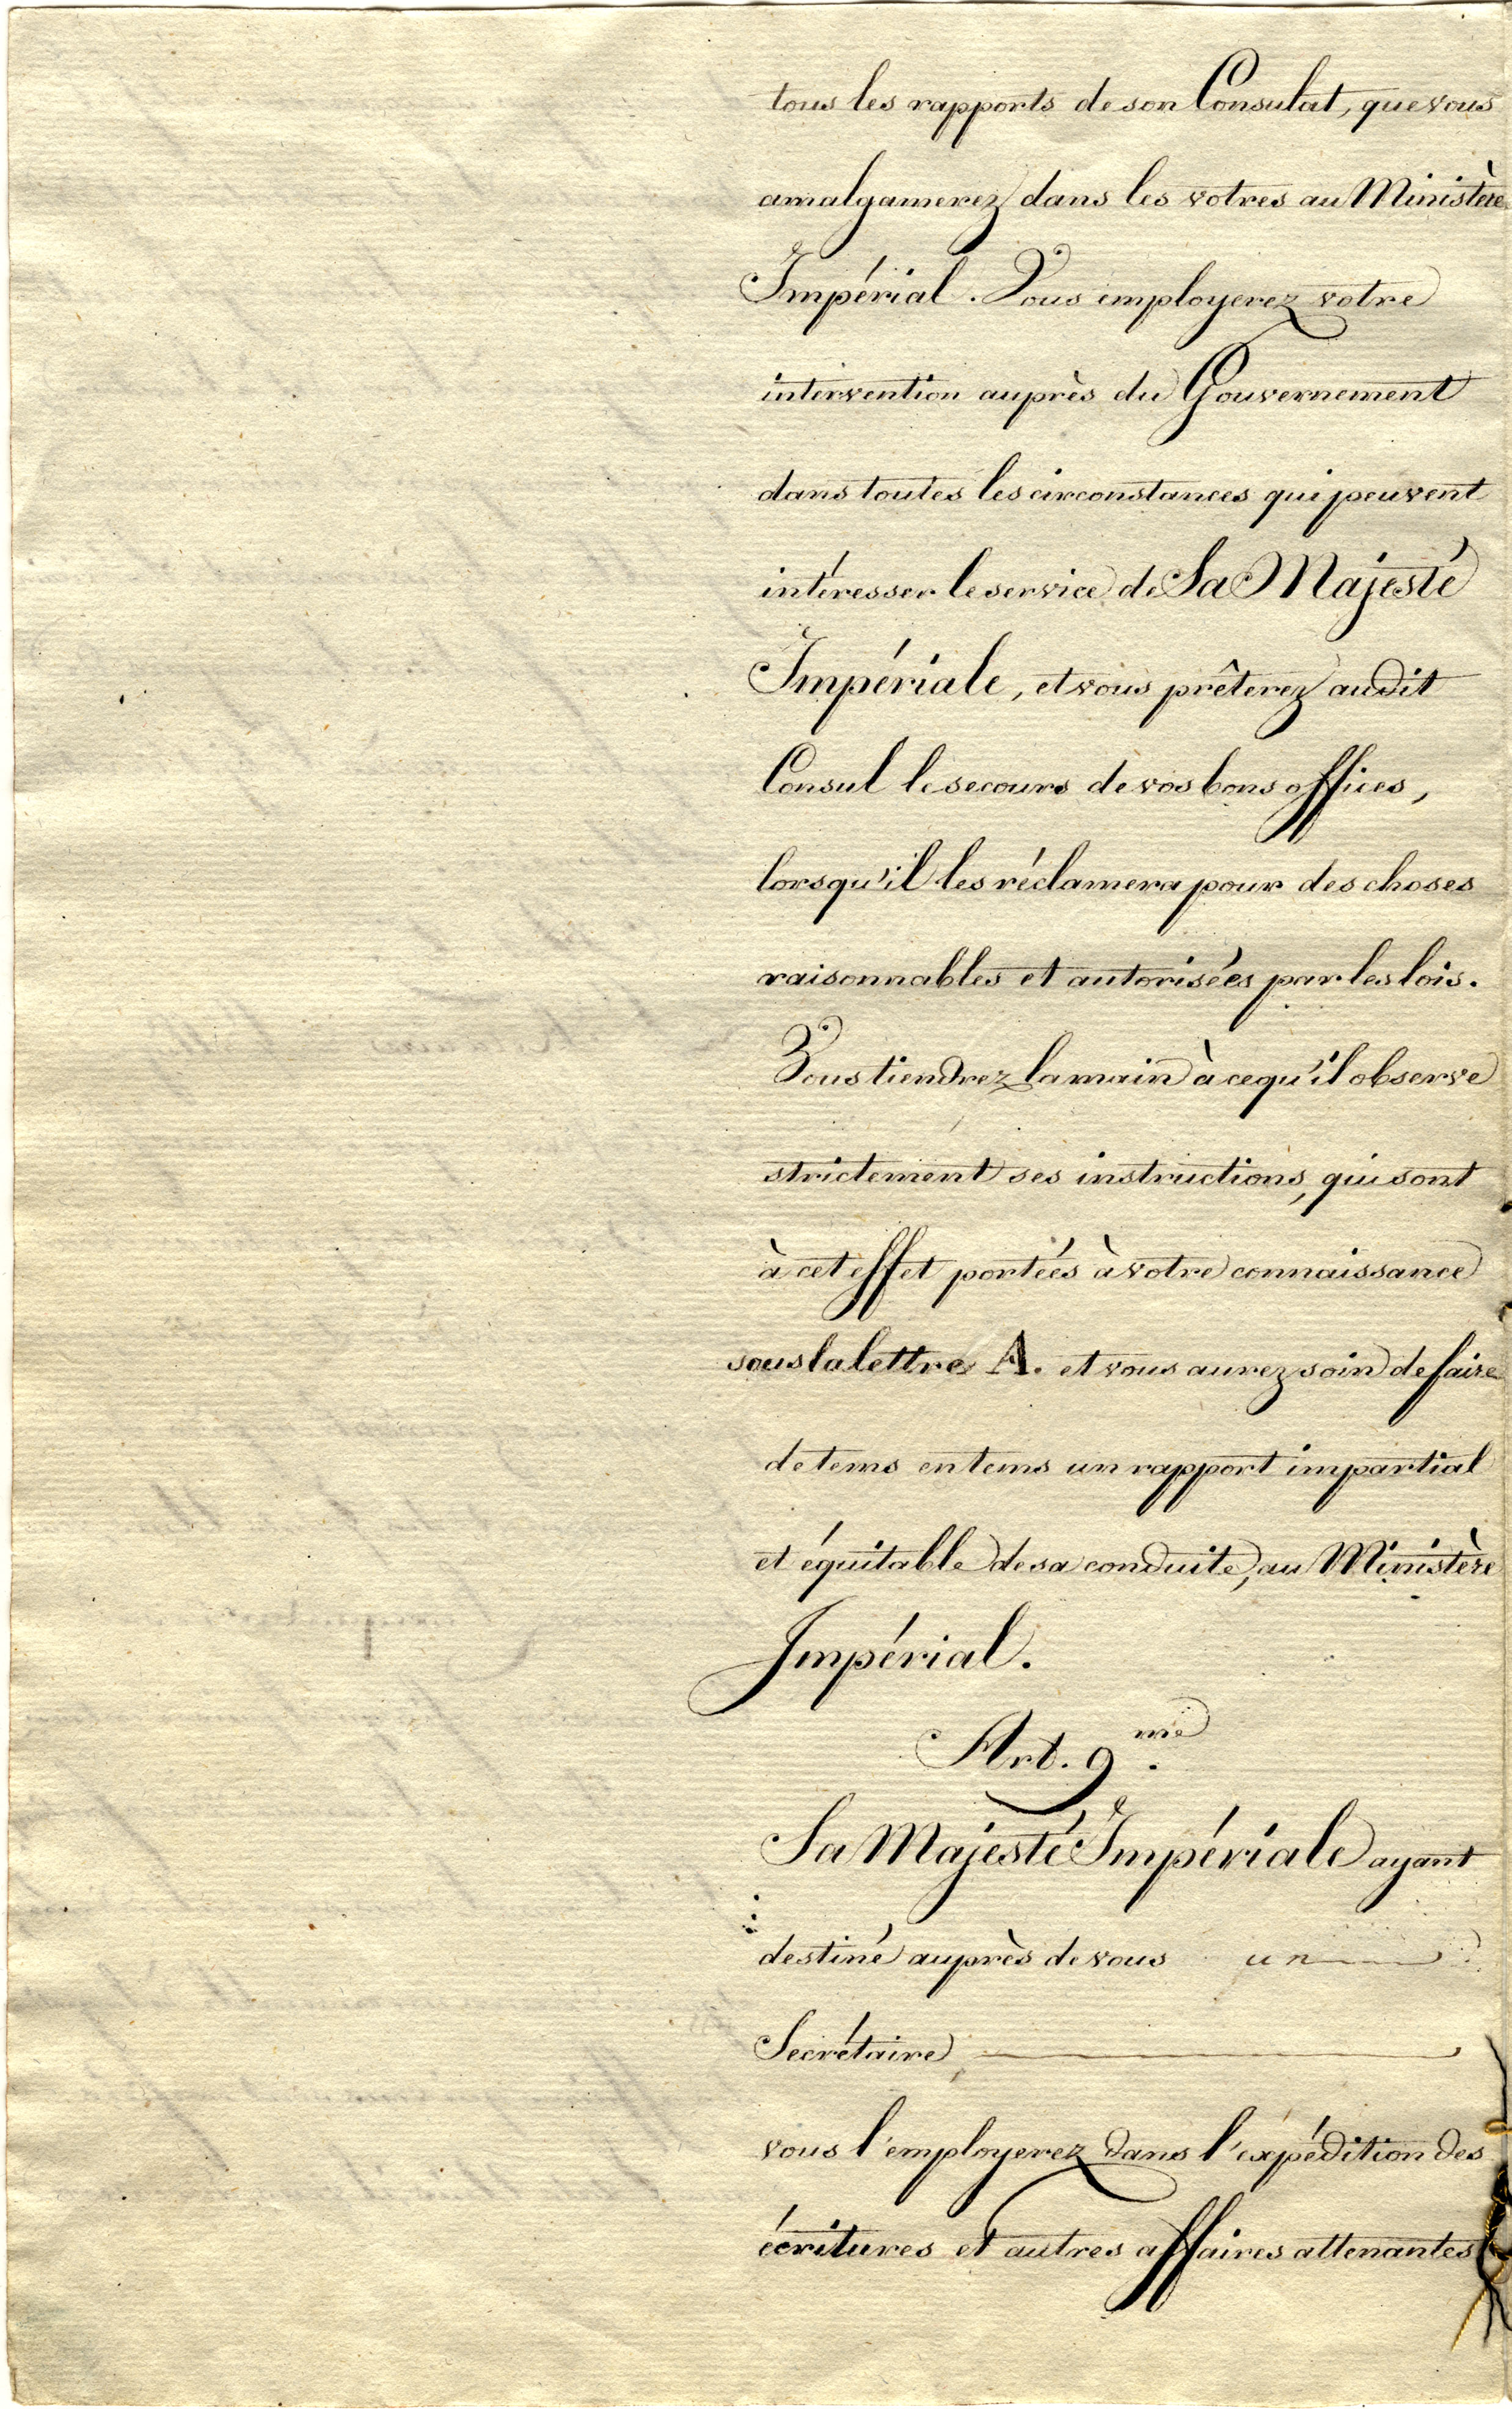 tous les rapports de son Consulat, que vous
amalgamerez dans les votres au Ministère
Impérial. Vous employerez votre
intervention auprès du Gouvernement
dans toutes les circonstances qui peuvent
intéresser le service de Sa Majesté
Impériale, et vous prêterez audit
Consul le secours de vos bons offices,
lorsqu'il les réclamera pour des choses
raisonnables et autorisées par les lois.
Vous tiendrez la main à ce qu'il observe
strictement ses instructions, qui sont
à cet effet portées à votre connaissance
sous la lettre A. et vous aurez soin de faire
de tems en tems un rapport impartial
et équitable de sa conduite, au Ministère
Impérial.
Art. 9.me
Sa Majesté Impériale ayant
destiné auprès de vous un
Secrétaire
vous l'employerez dans l'expédition des
écritures et autres affaires attenantes